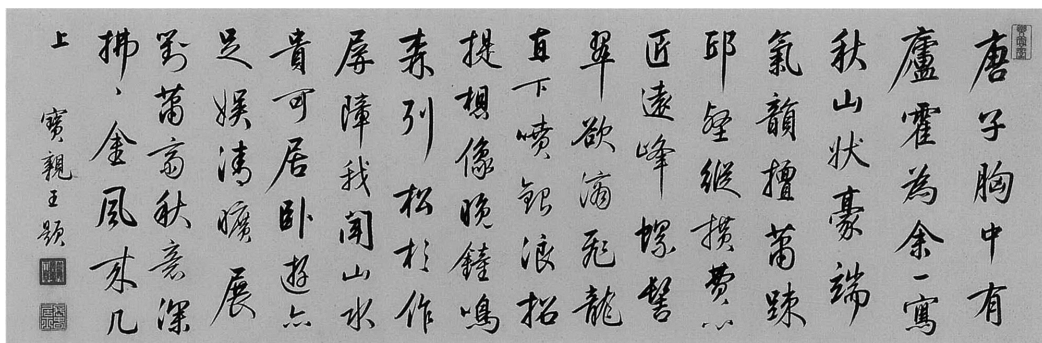 唐子胸中有
廬霍為余一寫
秋山狀豪端
氣韻擅蕭踈
邱壑縱横費心
匠遠峰螺髻
翠欲滴飛龍
直下噴銀浪招
提想像晚鐘鳴
森列松杉作
屏障我聞山水
貴可居卧遊亦
足娛清曠展
對蕭齋秋意深
拂〻金風來几
上
寶親王題